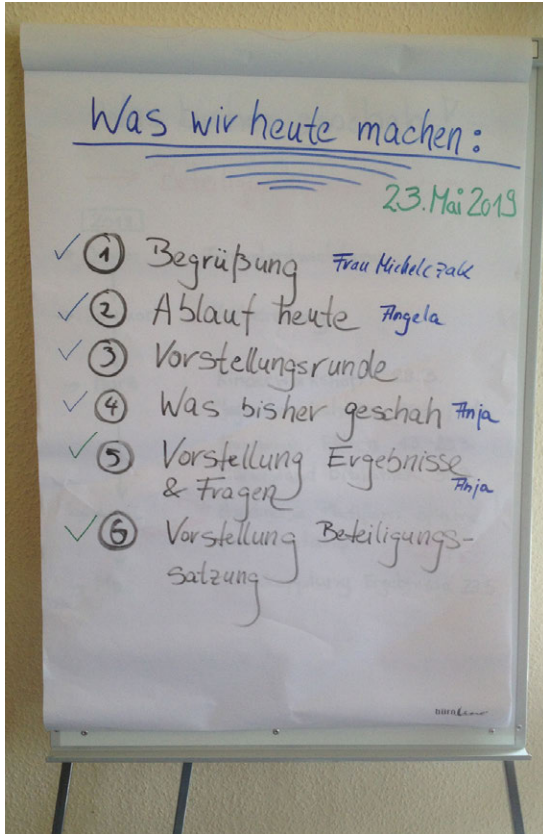 Was wir heute machen:
23. Mai 2019
✓ 1 Begrüßung Frau Michelczak
✓ 2 Ablauf heute Angela
✓ 3 Vorstellungsrunde
✓ 4 Was bisher geschah Anja
✓ 5 Vorstellung Ergebnisse
& Fragen Anja
✓ 6 Vorstellung Beteiligungs-
satzung